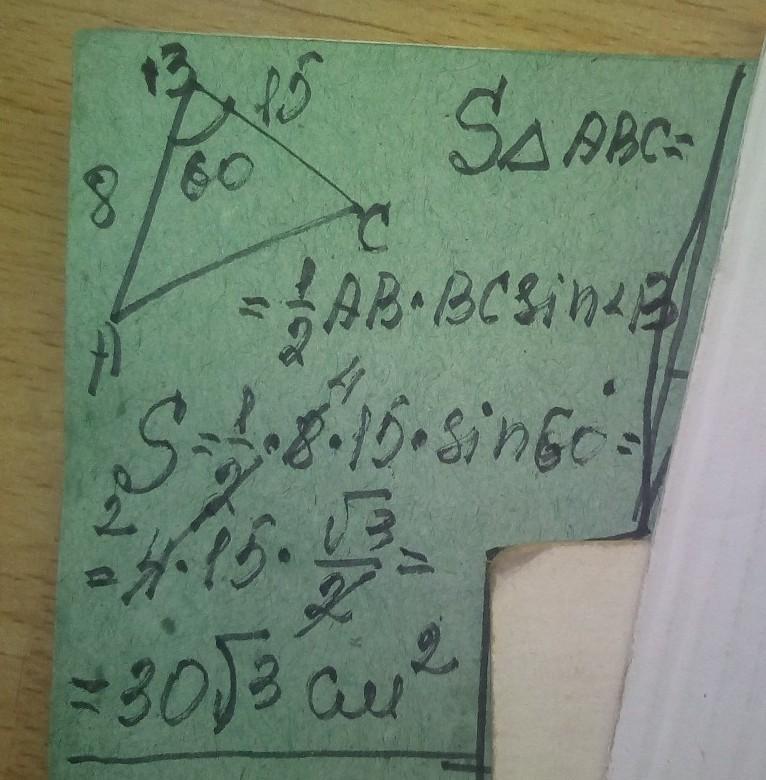 B 15
8 60
C
A
S△ABC=
= 1/2 AB·BC sin∠B
4
S=1/2·8·15·sin60°=
2
= 4·15·√3/2 =
= 30√3 см²